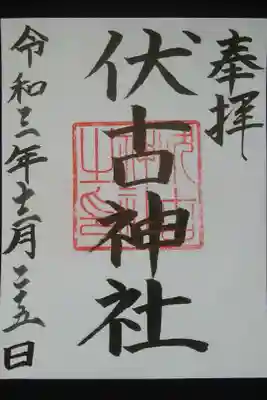 奉拝
伏古神社
令和三年十二月二十五日